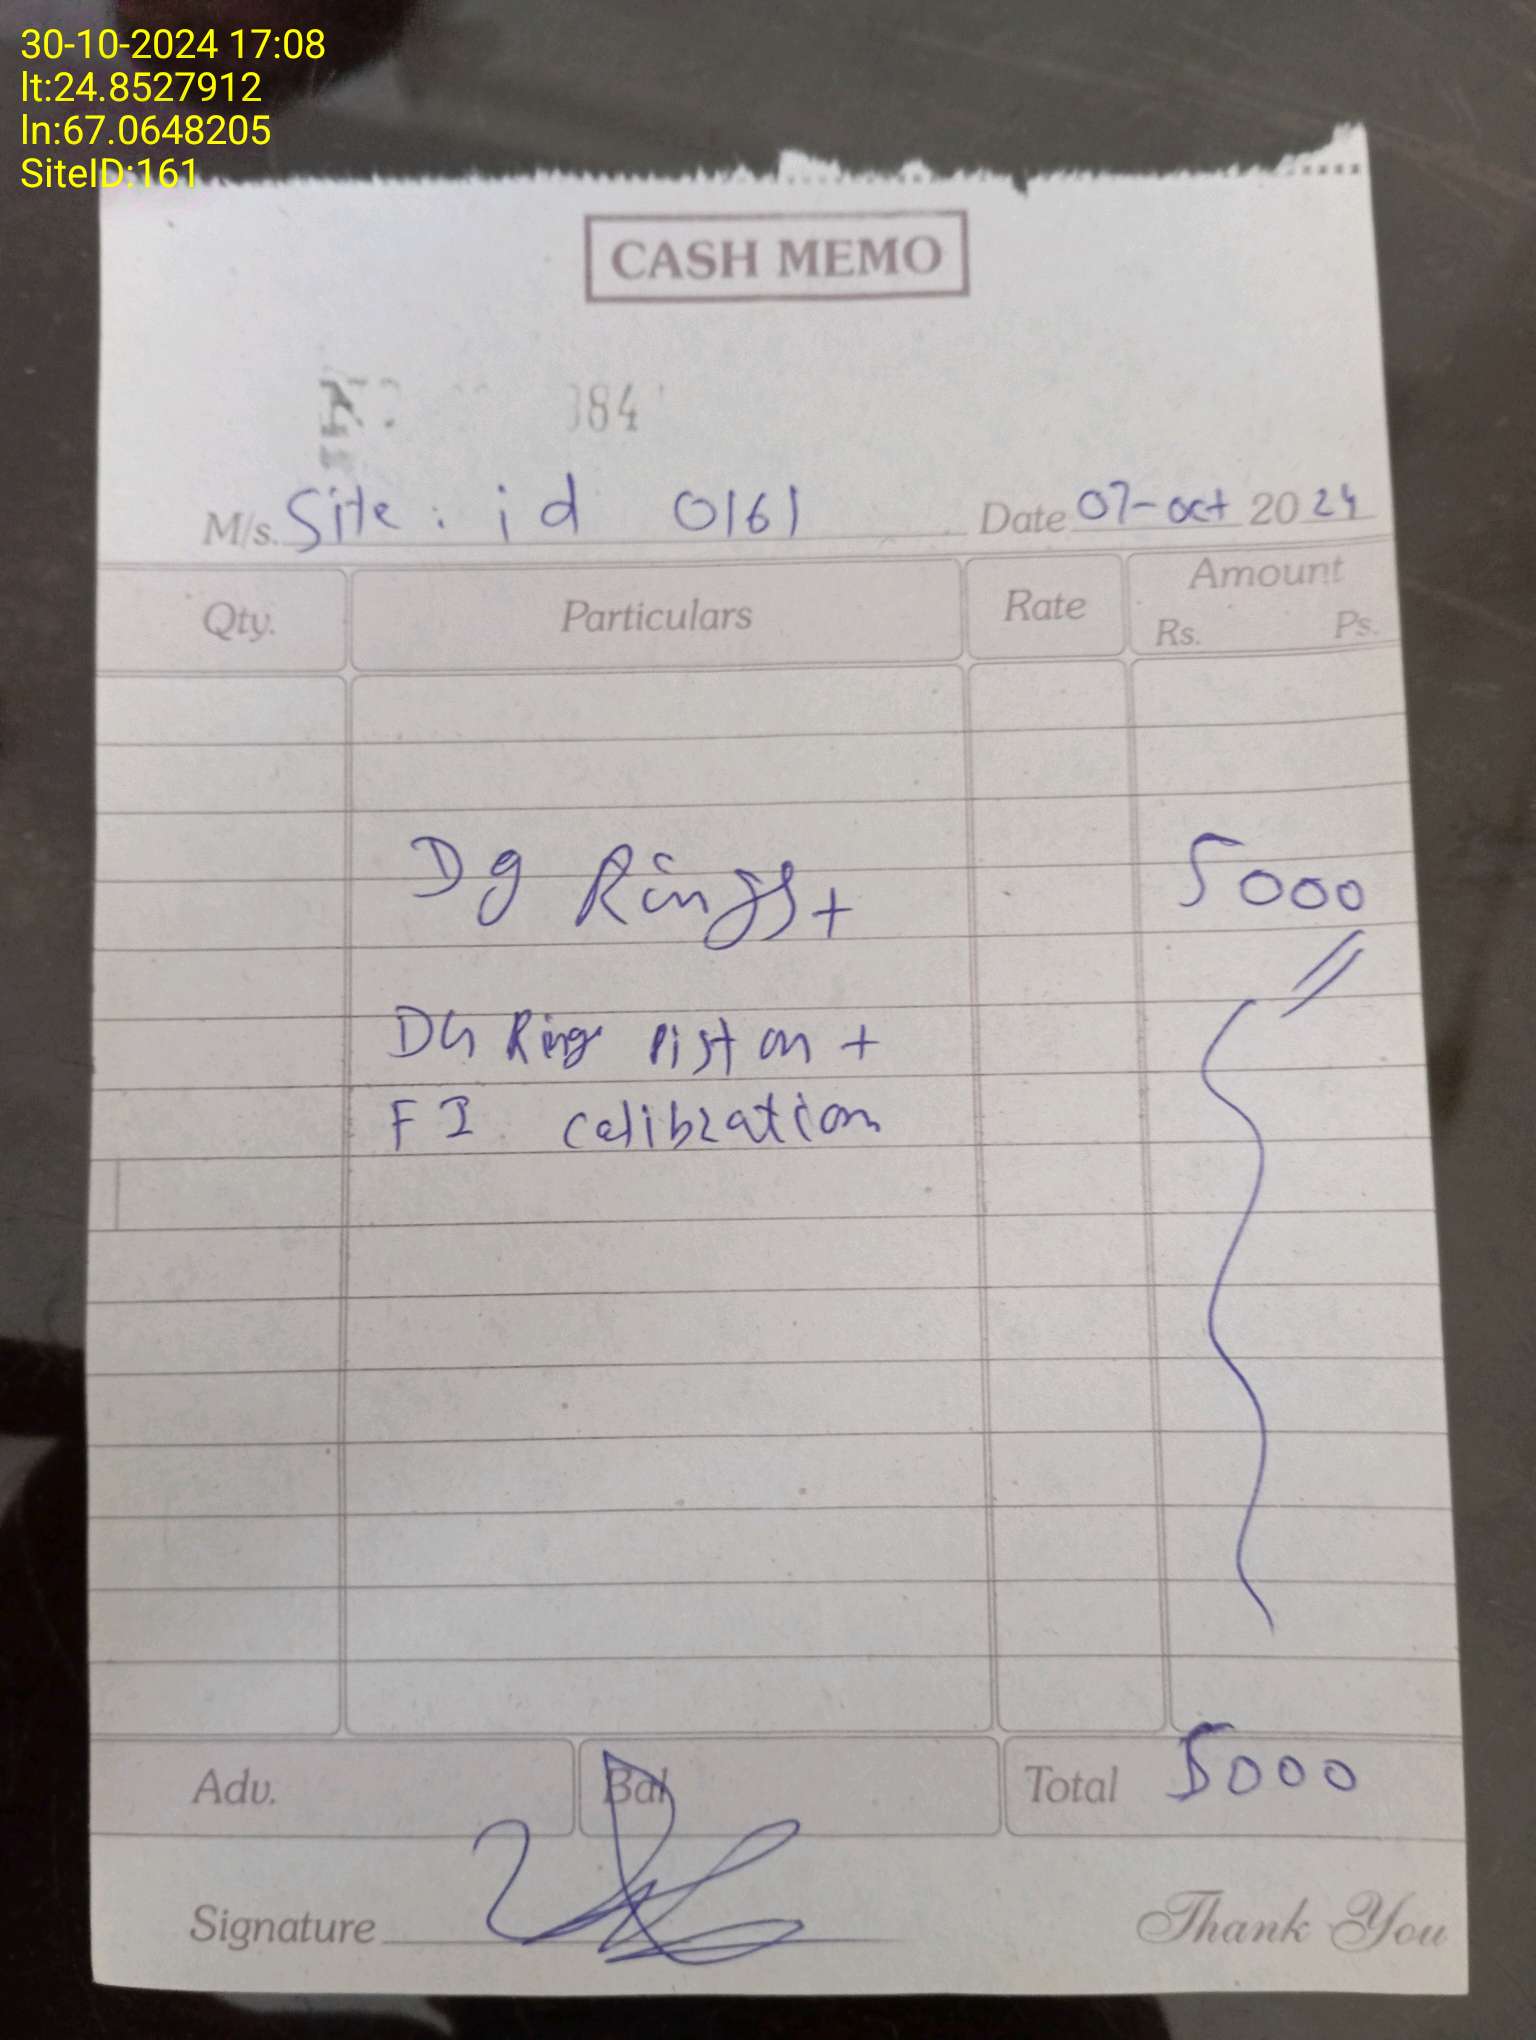 30-10-2024 17:08
lt:24.8527912
ln:67.0648205
SiteID:161
CASH MEMO
84
M/s. Site : id 0161 Date 07-oct 2024
Qty. Particulars Rate Amount
Rs. Ps.
Dg Rings + 5000
DG Ring Piston +
FI calibration
Adv. Bal Total 5000
Signature Thank You